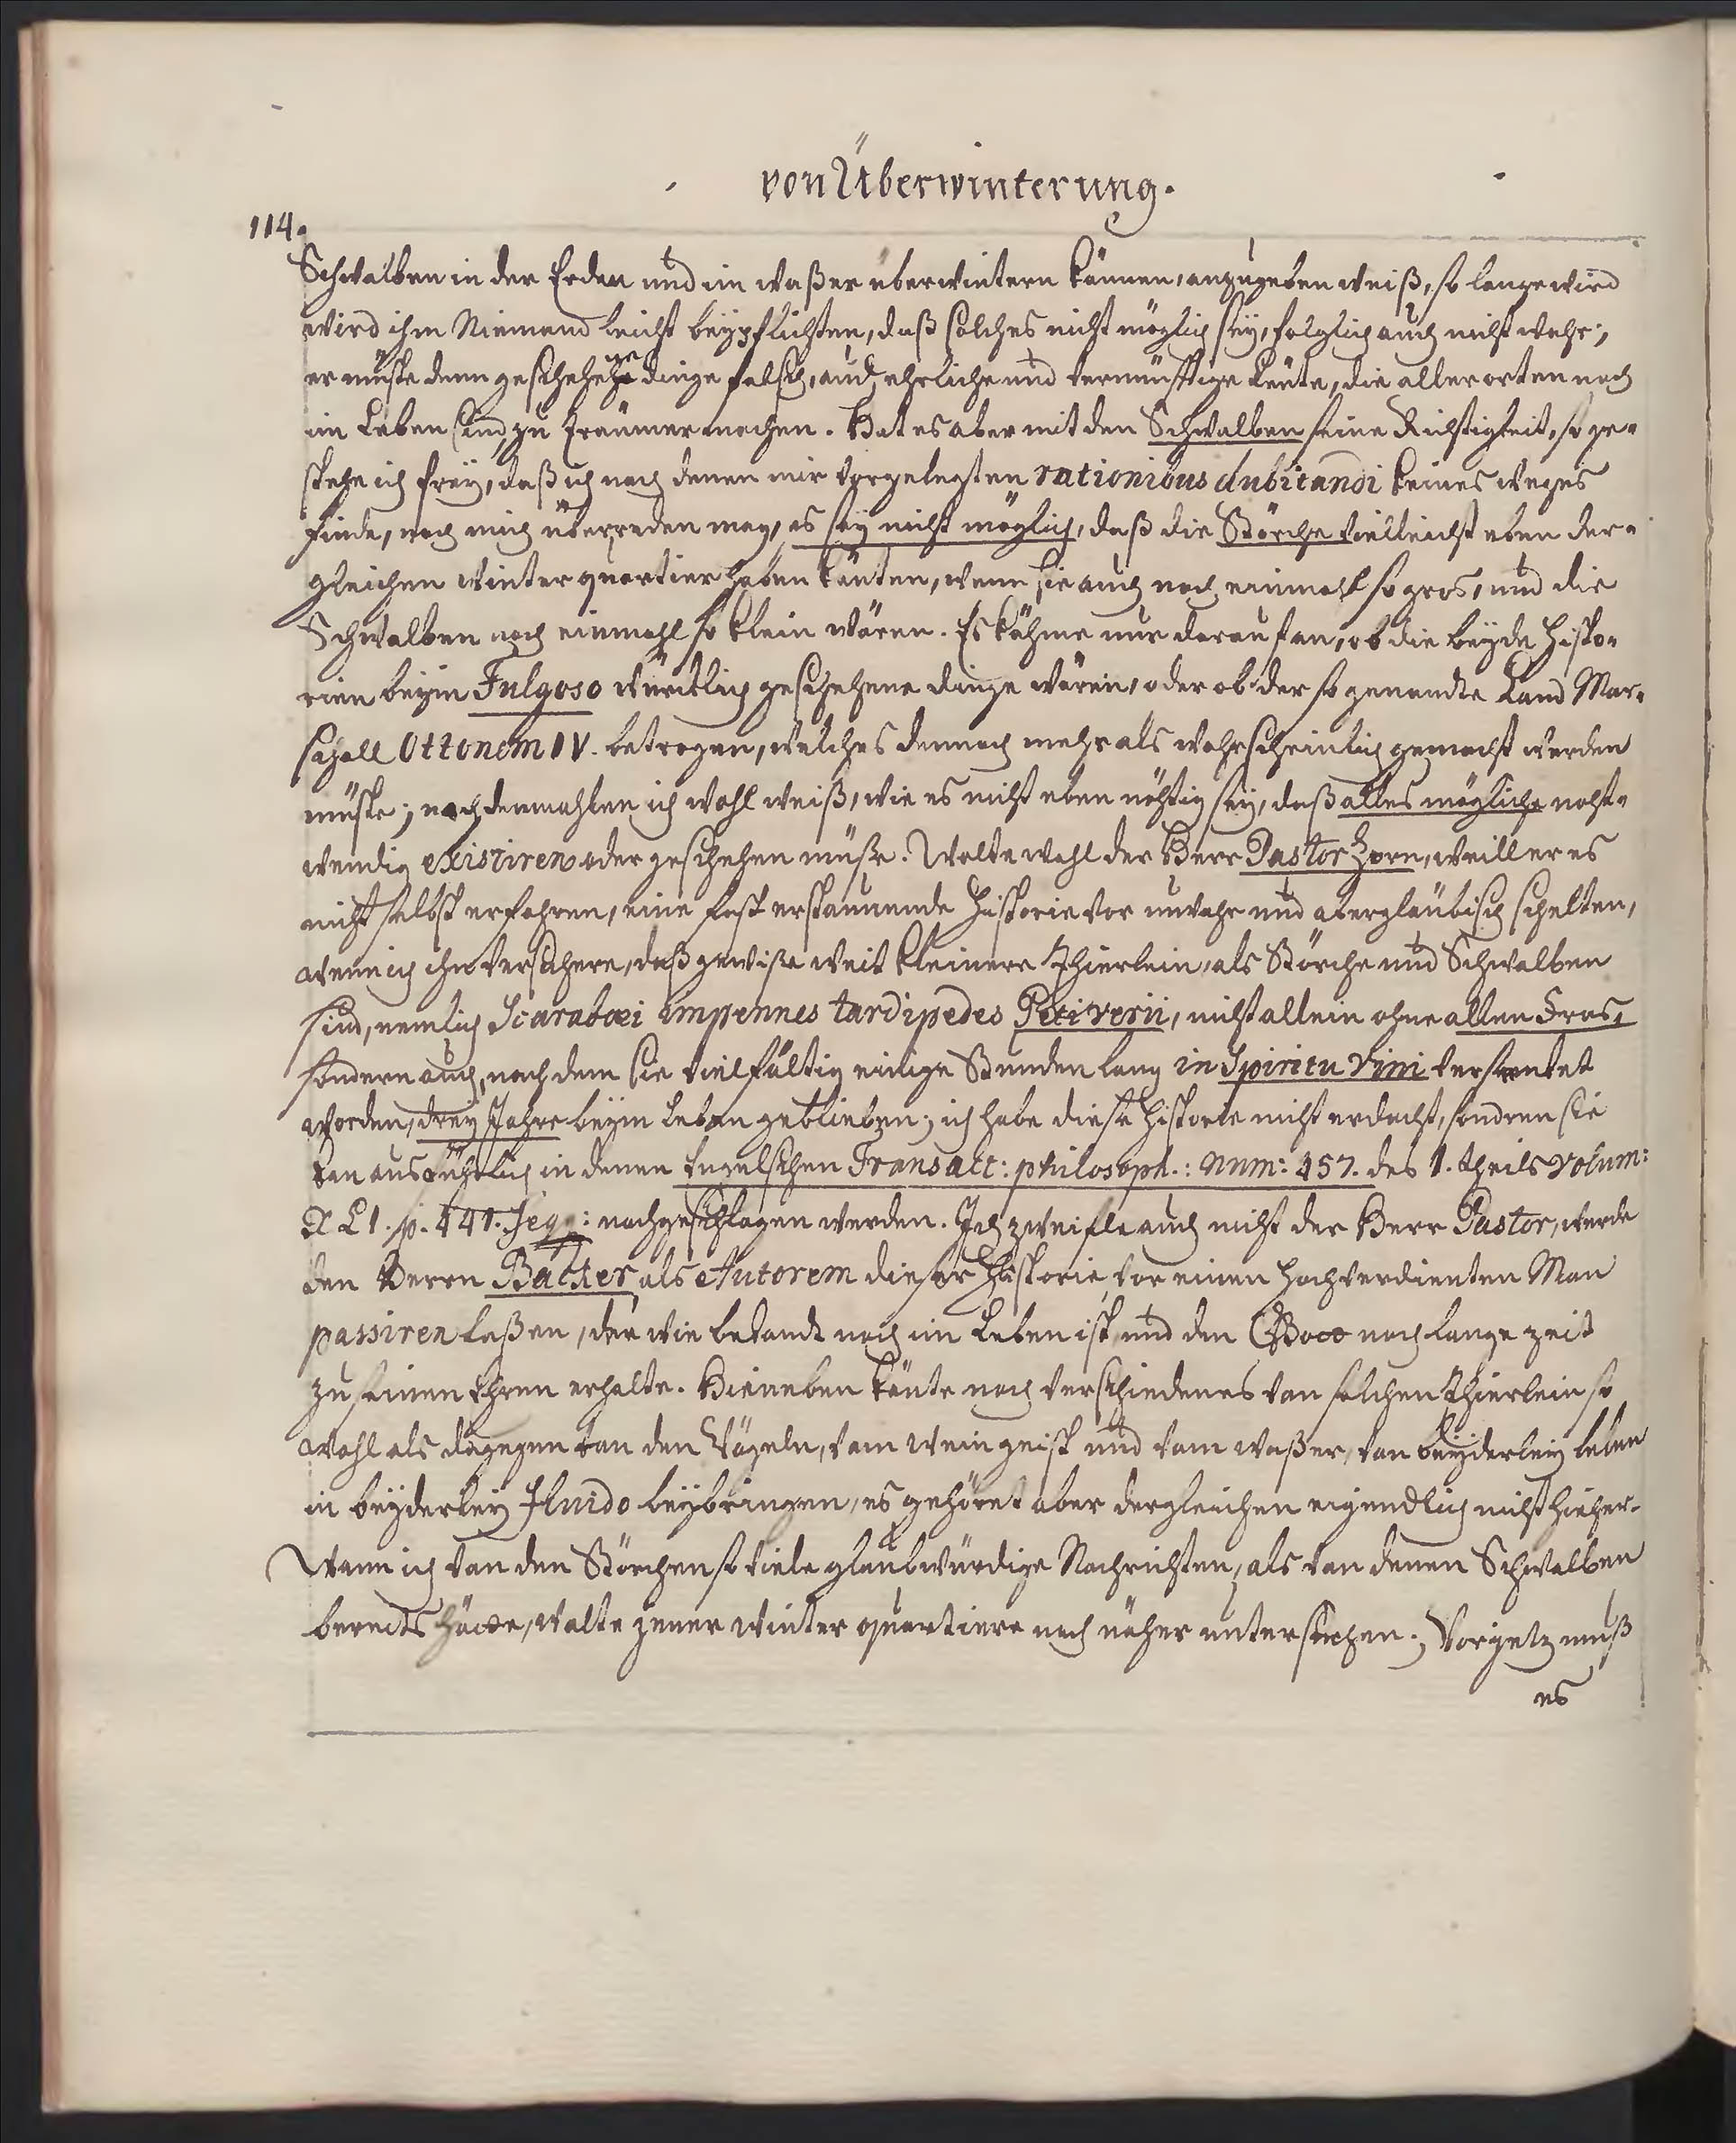 von Überwinterung.
114.
Schwalben in der Erden und im waßer überwintern können, anzugeben weiß, so lange wird
wird ihm Niemand leicht beypflichten, daß solches nicht möglich sey, folglich auch nicht wahr;
er müste denn geschehene dinge falsch, auch ehrliche und vernünfftige Leüte, die aller orten noch
im Leben sind, zu Träumer machen. Hat es aber mit den Schwalben seine Richtigkeit, so ge-
stehe ich frey, daß ich nach denen mir vorgelegten rationibus dubitandi keines weges
finde, noch mich überreden mag, es sey nicht möglich, daß die Störche vielleicht eben der-
gleichen winter quartier haben könten, wenn sie auch noch einmahl so gros, und die
Schwalben noch einmahl so klein wären. Es kähme nur darauf an, ob die beyde Histo-
rien beym Fulgoso würcklich geschehene dinge wären, oder ob der so genandte Land Mar-
schall Ottonem IV. betrogen, welches dennoch mehr als wahrscheinlich gemacht werden
müste; nachdemmahlen ich wohl weiß, wie es nicht eben nöhtig sey, daß alles mögliche noht-
wendig existiren oder geschehen müße. Wolte wohl der Herr Pastor Zorn, weill er es
nicht selbst erfahren, eine fast erstaunende Historie vor unwahr und abergläubisch schelten,
wenn ich ihn versichere, daß gewiße weit kleinere Thierlein, als Störche und Schwalben
sind, nemlich Scarabœi impennes tardipedes Petiverii, nicht allein ohne allen Fras,
sondern auch, nach dem sie vielfältig einige Stunden lang in Spiritu Vini versencket
worden, drey Jahre beym Leben geblieben; ich habe diese Historie nicht erdacht, sondren sie
kan ausführlich in denen Engelschen Transact: philosoph.: Num: 457. des 1. theils Volum:
XLI. p. 441. seqq: nachgeschlagen werden. Ich zweifle auch nicht der Herr Pastor, werde
den Herrn Backer als Autorem dieser Historie, vor einen hochverdienten Man
passiren laßen, der wie bekandt noch im Leben ist, und den Gott noch lange zeit
zu seinen Ehren erhalte. Hieneben könte noch verschiedenes von solchen Thierlein so
wohl als dagegen von den Vögeln, vom weingeist und vom waßer, von beyderley leben
in beyderley Fluido beybringen, es gehöret aber dergleichen eigendlich nicht hieher.
Wann ich von den Störchen so viele glaubwürdige Nachrichten, als von denen Schwalben
bereits hätte, wolte jener winter quartiere noch näher untersuchen; Vorjetz muß
es